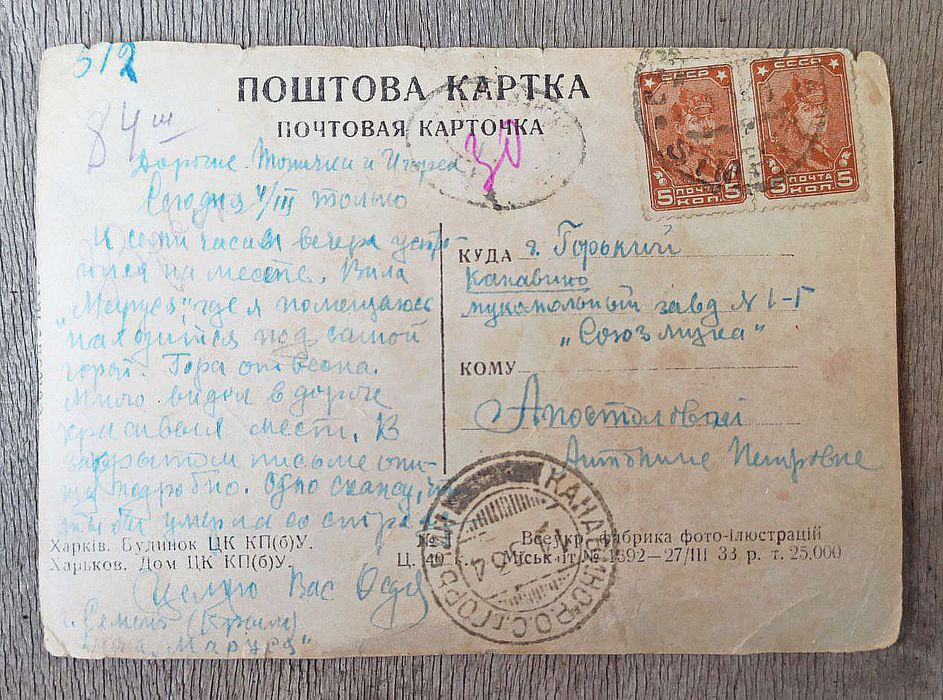 5/2
ПОШТОВА КАРТКА
ПОЧТОВАЯ КАРТОЧКА
84 ш
30
СССР
ПОЧТА
5 КОП. 5
СССР
ПОЧТА
5 КОП. 5
Дорогие и
Сегодня 4/III только
К семи часам вечера устро-
ился на месте. Вила
„Маруся", где я помещаюсь
находится под самой
горой. Гора отвесна.
Много видел в дороге
красивых мест. В
закрытом письме опи-
шу подробно. Одно скажу, что
ты бы умерла со страха
Целую Вас Ося
г. Семеиз (Крым)
"Маруся"
КУДА г. Горький
Канавино
мукомольный завод N 1-Г
„Союзмука"
КОМУ
Апостоловой
Антонине Петровне
Харків. Будинок ЦК КП(б)У.
Харьков. Дом ЦК КП(б)У.
№
Ц. 40 к.
Всеукр. фабрика фото-ілюстрацій
Міськліт № 1892—27/III 33 р. т. 25.000
КАНАВИНО Р.С.Г.ГОРЬКИЙ